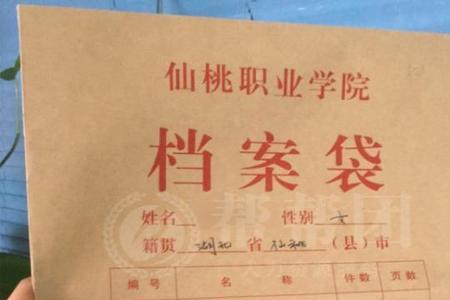 仙桃职业学院
档案袋
姓名 性别 女
籍贯 湖北 省 仙桃 （县）市
编号 名称 件数 页数
帮帮团